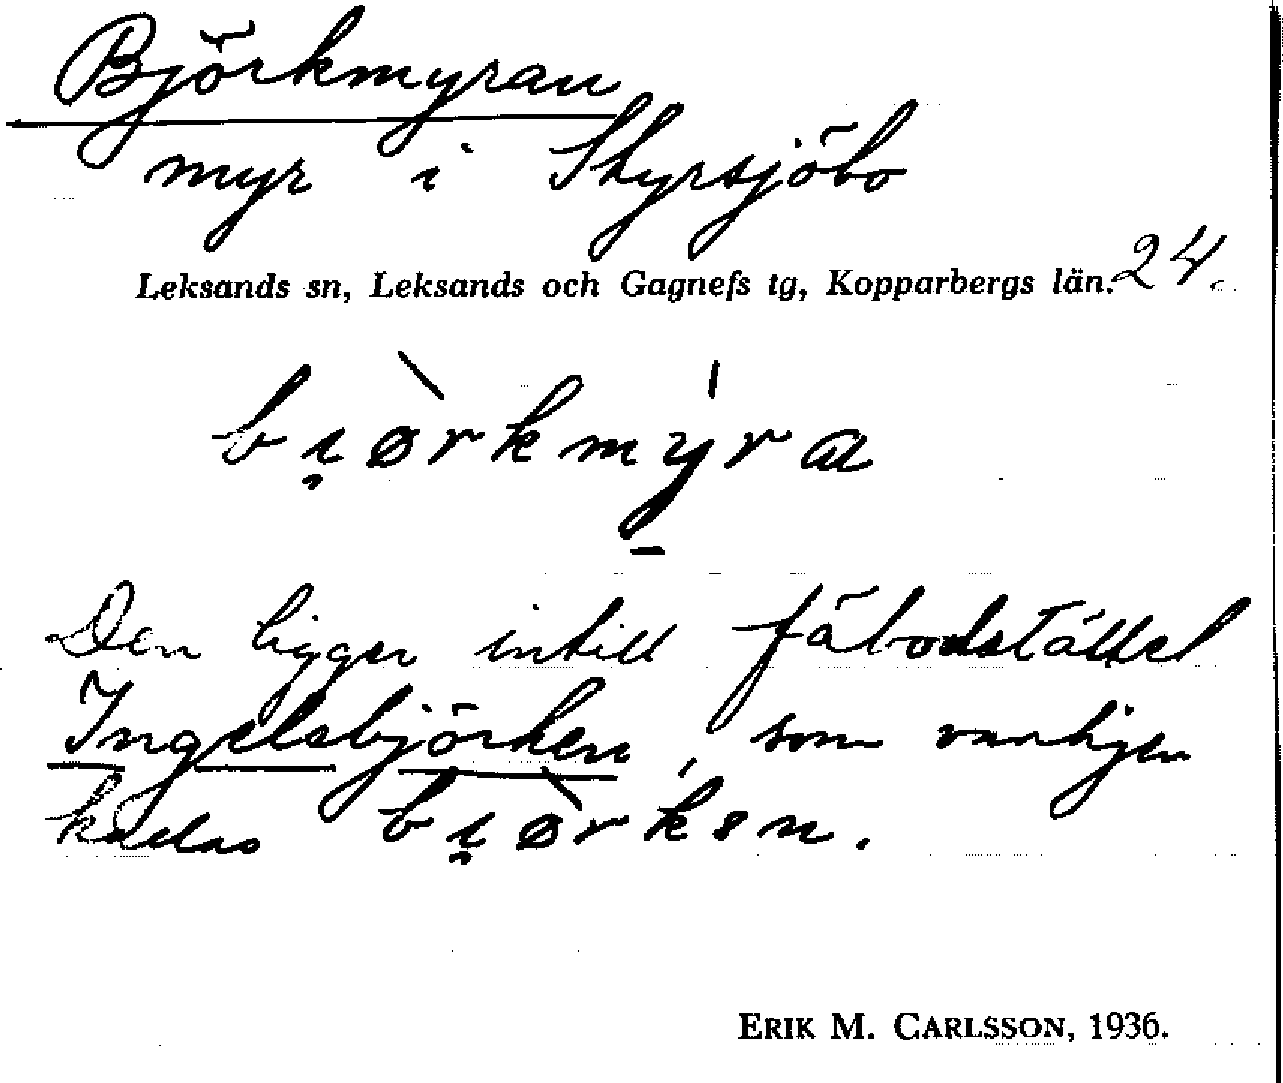 Björkmyran
myr i Styrsjöbo
Leksands sn, Leksands och Gagnefs tg, Kopparbergs län. 24.
bi̯ørkmyra
Den ligger intill fäbodstället
Ingelsbjörken, som vanligen
kallas bi̯ørken.
ERIK M. CARLSSON, 1936.